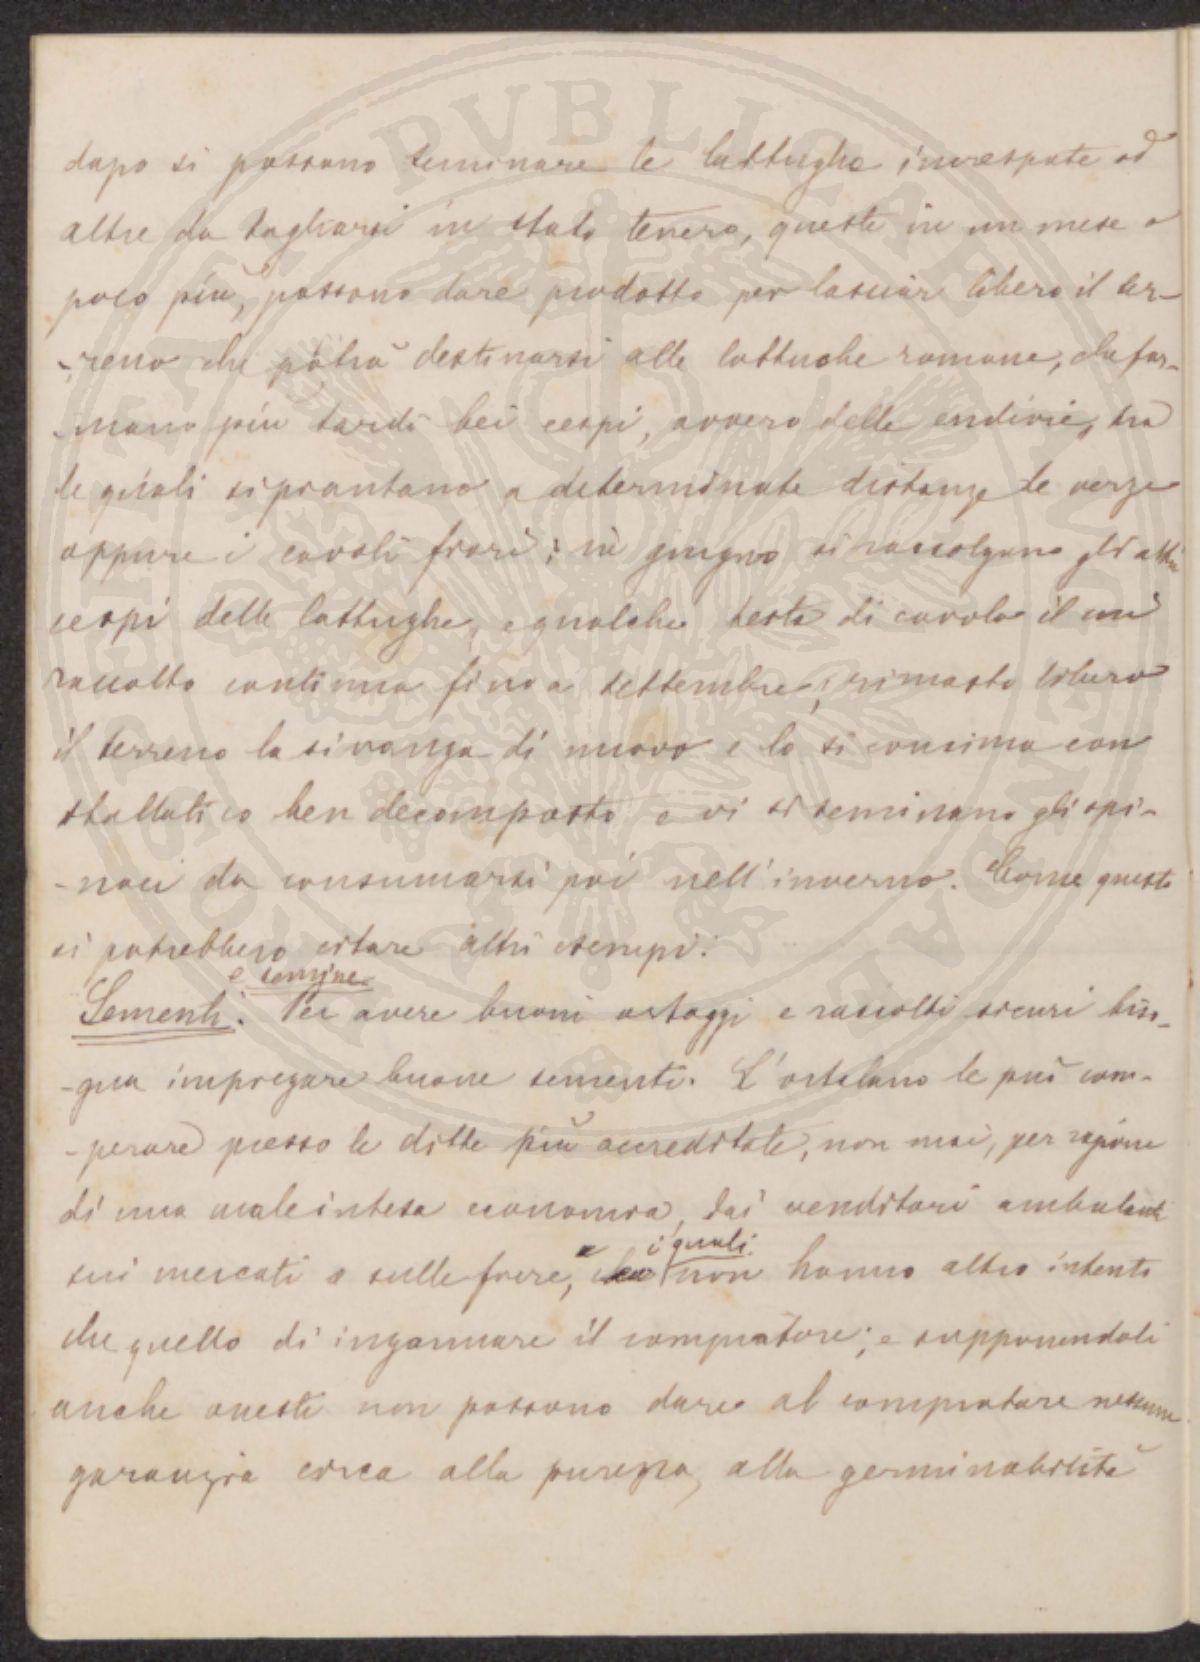 dopo si possono seminare le lattughe increspate ed
altre da tagliarsi in stato tenero, queste in un mese o
poco più, possono dare prodotto per lasciar libero il ter-
-reno che potrà destinarsi alle lattuche romane, che for-
-mano più tardi bei cespi, ovvero delle endivie, tra
le quali si piantano a determinate distanze le verze
oppure i cavoli fiori; in giugno si raccolgono gli altri
cespi delle lattughe, e qualche testa di cavolo il cui
raccolto continua fino a settembre; rimasto libero
il terreno la si vanga di nuovo e lo si concima con
stallatico ben decomposto e vi si seminano gli spi-
-naci da consumarsi poi nell'inverno. Come questo
si potrebbero citare altri esempi.
e semine
Sementi. Per avere buoni ortaggi e raccolti sicuri biso-
-gna impiegare buone sementi. L'ortolano le può com-
-perare presso le ditte più accreditate, non mai, per ragione
di una male intesa economia, dai venditori ambulanti
i quali
sui mercati o sulle fiere, non hanno altro intento
che quello di ingannare il compratore; e supponendoli
anche onesti non possono dare al compratore nessuna
garanzia circa alla purezza, alla germinabilità
PVBLICAE VTILITATI